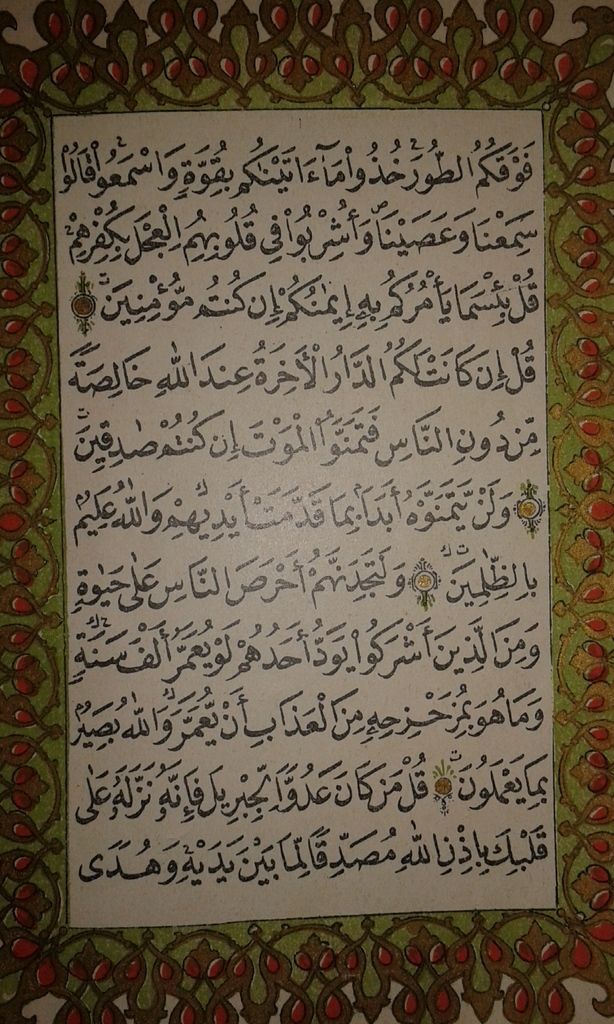 فَوْقَكُمُ الطُّورَۚ خُذُوا۟ مَآ ءَاتَيْنَٰكُم بِقُوَّةٍ وَاسْمَعُوا۟ۖ قَالُوا۟
سَمِعْنَا وَعَصَيْنَا وَأُشْرِبُوا۟ فِى قُلُوبِهِمُ الْعِجْلَ بِكُفْرِهِمْۚ
قُلْ بِئْسَمَا يَأْمُرُكُم بِهِۦٓ إِيمَٰنُكُمْ إِن كُنتُم مُّؤْمِنِينَ
قُلْ إِن كَانَتْ لَكُمُ الدَّارُ الْأَخِرَةُ عِندَ اللَّهِ خَالِصَةً
مِّن دُونِ النَّاسِ فَتَمَنَّوُا۟ الْمَوْتَ إِن كُنتُمْ صَٰدِقِينَ
وَلَنْ يَّتَمَنَّوْهُ أَبَدًۢا بِمَا قَدَّمَتْ أَيْدِيهِمْۗ وَاللَّهُ عَلِيمٌۢ
بِالظَّٰلِمِينَ وَلَتَجِدَنَّهُمْ أَحْرَصَ النَّاسِ عَلَىٰ حَيَوٰةٍ
وَمِنَ الَّذِينَ أَشْرَكُوا۟ يَوَدُّ أَحَدُهُمْ لَوْ يُعَمَّرُ أَلْفَ سَنَةٍ
وَمَا هُوَ بِمُزَحْزِحِهِۦ مِنَ الْعَذَابِ أَنْ يُّعَمَّرَۗ وَاللَّهُ بَصِيرٌۢ
بِمَا يَعْمَلُونَ قُلْ مَن كَانَ عَدُوًّا لِّجِبْرِيلَ فَإِنَّهُۥ نَزَّلَهُۥ عَلَىٰ
قَلْبِكَ بِإِذْنِ اللَّهِ مُصَدِّقًا لِّمَا بَيْنَ يَدَيْهِ وَهُدًى